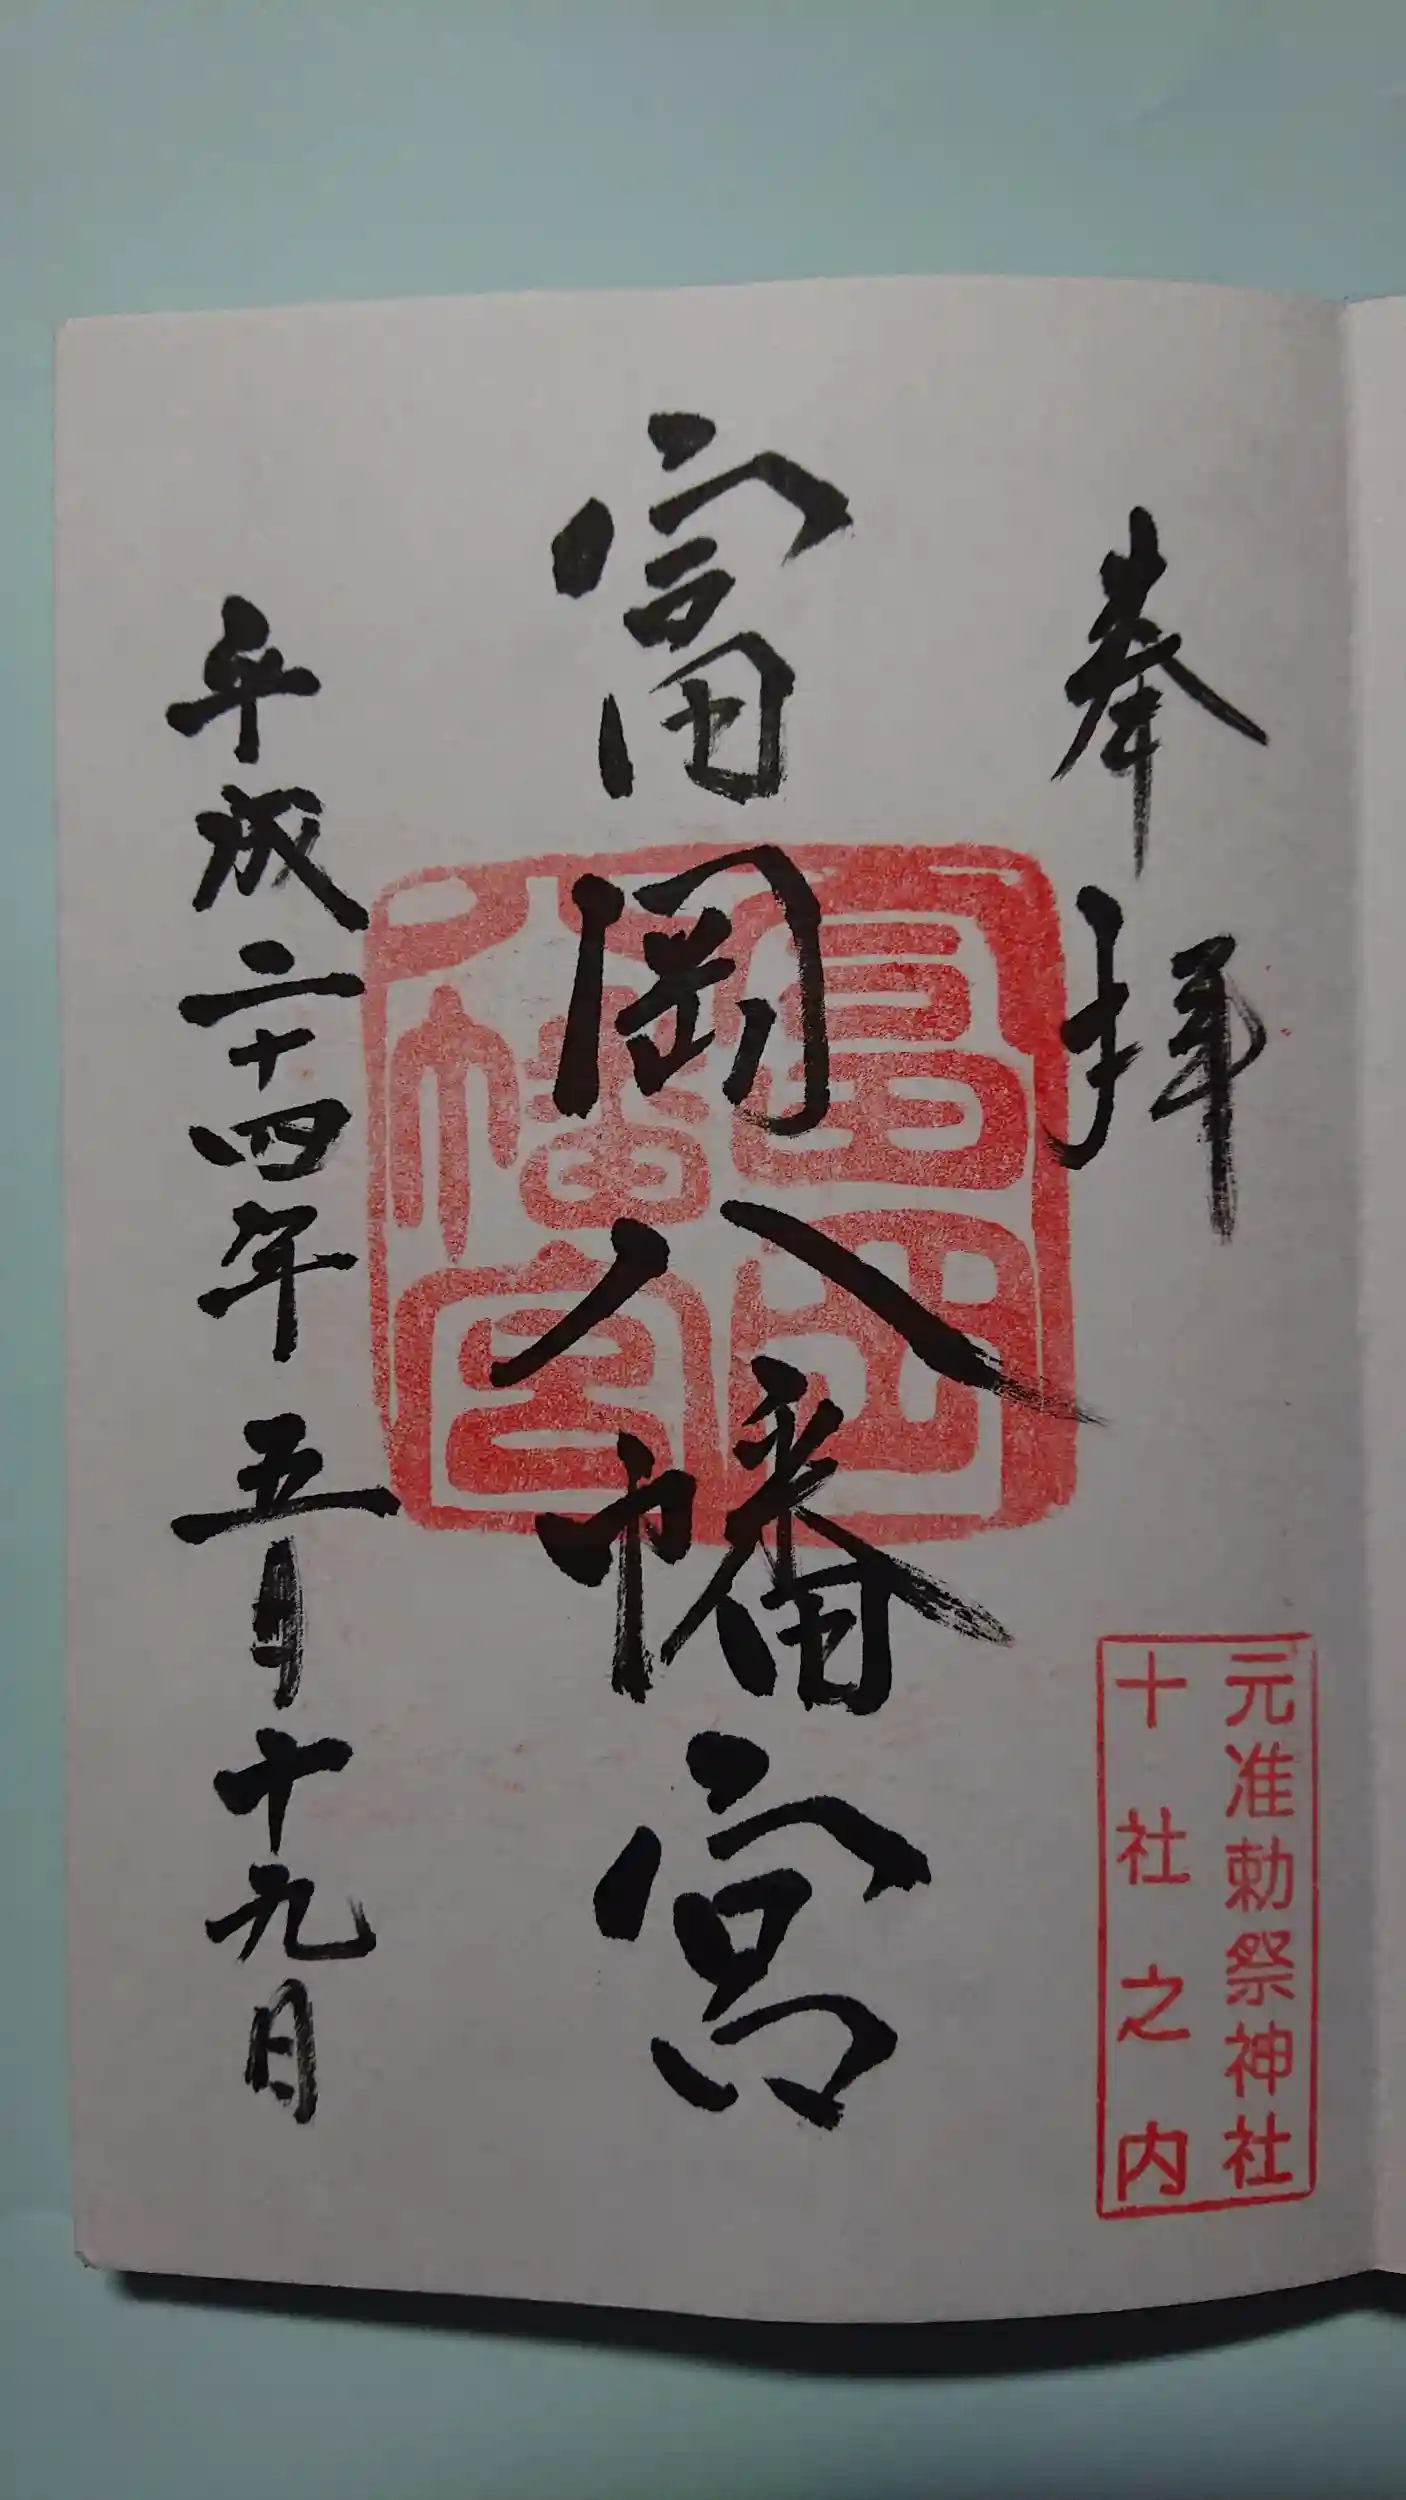 奉拝
元准勅祭神社
十社之内
富岡八幡宮
富岡
八幡宮
平成二十四年五月十九日